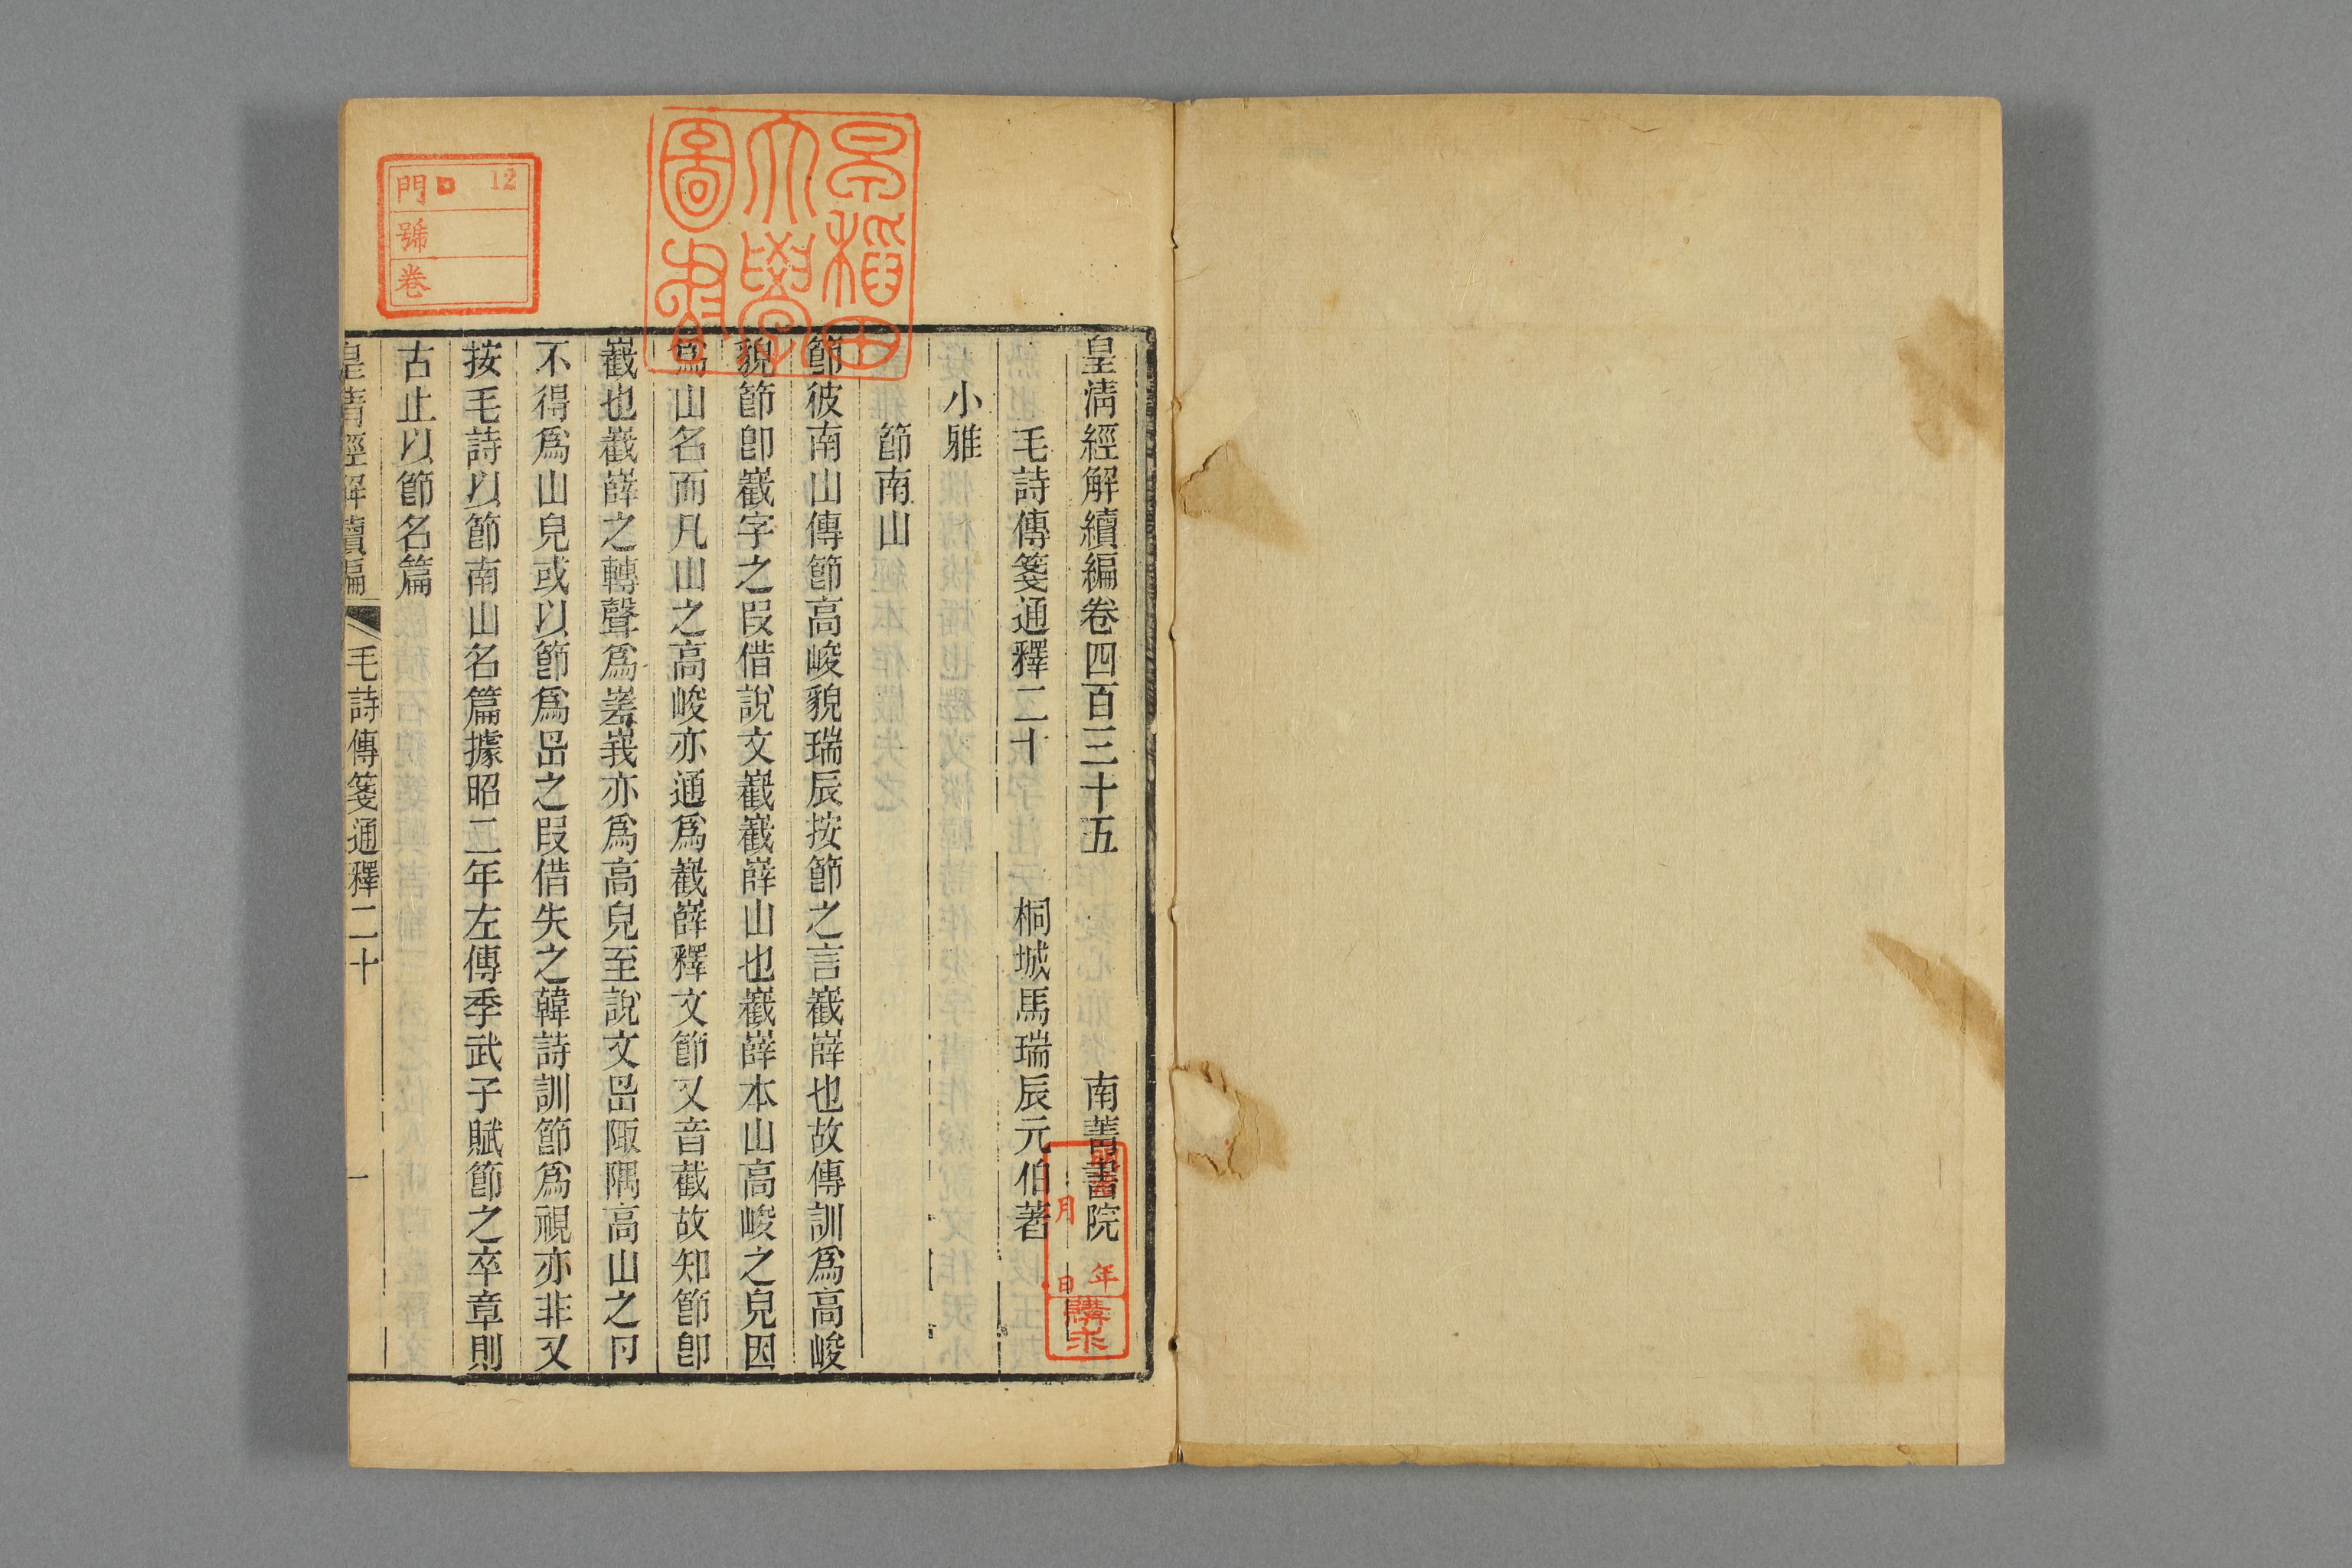 皇清經解續編卷四百三十五 南菁書院
毛詩傳箋通釋二十 桐城馬瑞辰元伯著
小雅
節南山
節彼南山傳節高峻貌瑞辰按節之言巀嶭也故傳訓爲高峻
貌節卽巀字之叚借說文巀巀嶭山也巀嶭本山高峻之皃因
爲山名而凡山之高峻亦通爲巀嶭釋文節又音截故知節卽
巀也巀嶭之轉聲爲嵳峩亦爲高皃至說文岊陬隅高山之卪
不得爲山皃或以節爲岊之叚借失之韓詩訓節爲視亦非又
按毛詩以節南山名篇據昭二年左傳季武子賦節之卒章則
古止以節名篇
皇清經解續編 毛詩傳箋通釋二十 一
早稻田
大學
圖書
12
門
號
卷
年
月
日
購求